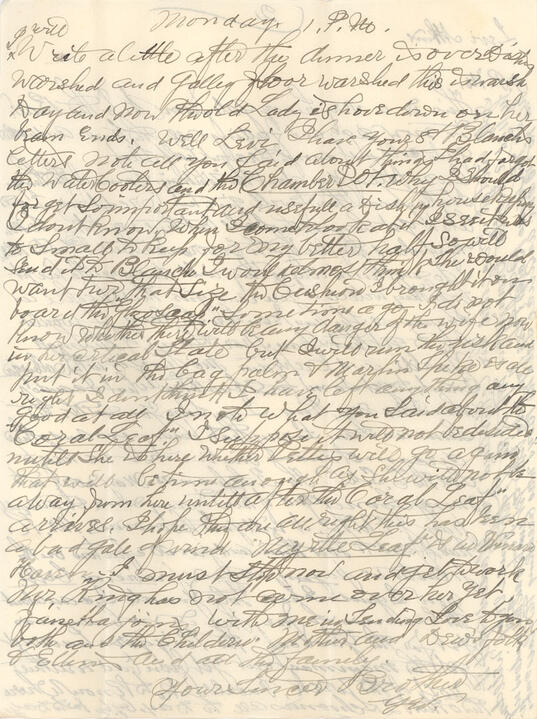 Monday 1. P.M.
Write a little after the dinner is over Dishes
warshed and Galley floor warshed this is warsh
Day and now the old Lady is hove down on her
Beam Ends. Well Levi I have yours & Blanch
letters Note all you said about things I had forgot
the Water Coolers and the Chamber Pot. Why I should
forget so important and usefull a
I dont know. When I come to look at it I see it was
to small to keep for my better half So will
send it to Blanch I would almost think she would
want two that size the Cushion I brought it on
board the Sometime ago I do not
know whether there will be any danger of the wife now
in her State but I will run the risk and
put it in the bag
right I dont think I have left anything any
good at all. I note What you said about the
"Coral Leaf." I suppose it will not be decided
untill she is here whether Lettie will go again
that will be time enough as she will not go
away from here untill after the "Coral Leaf"
arrives. I hope they are all right this has been
a bad gale of wind. "Myrtle Leaf" is at
Haven I must stop now and get to work
Mr King has not come over her yet.
joins with me in Sending Love to you
both and the Children. Mother and Dear folks
& and all the family.
Your Sincer Brother
Geo.